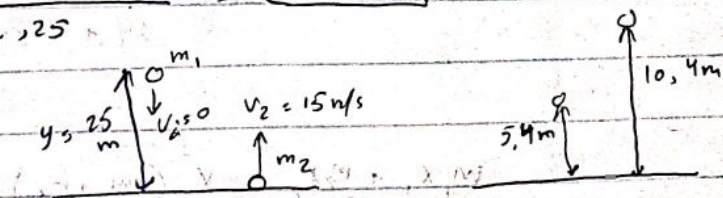 ,25
m₁
y = 25 m
V₁ = 0
V₂ = 15 m/s
m₂
5,4m
10,4m